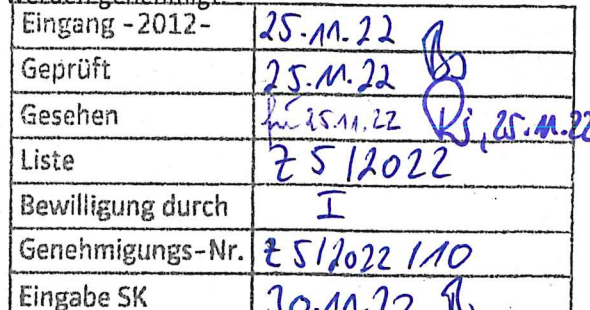 Eingang -2012- 25.11.22
Geprüft 25.11.22
Gesehen 25.11.22 25.11.22
Liste Z 5/2022
Bewilligung durch I
Genehmigungs-Nr. Z 5/2022/10
Eingabe SK 30.11.22